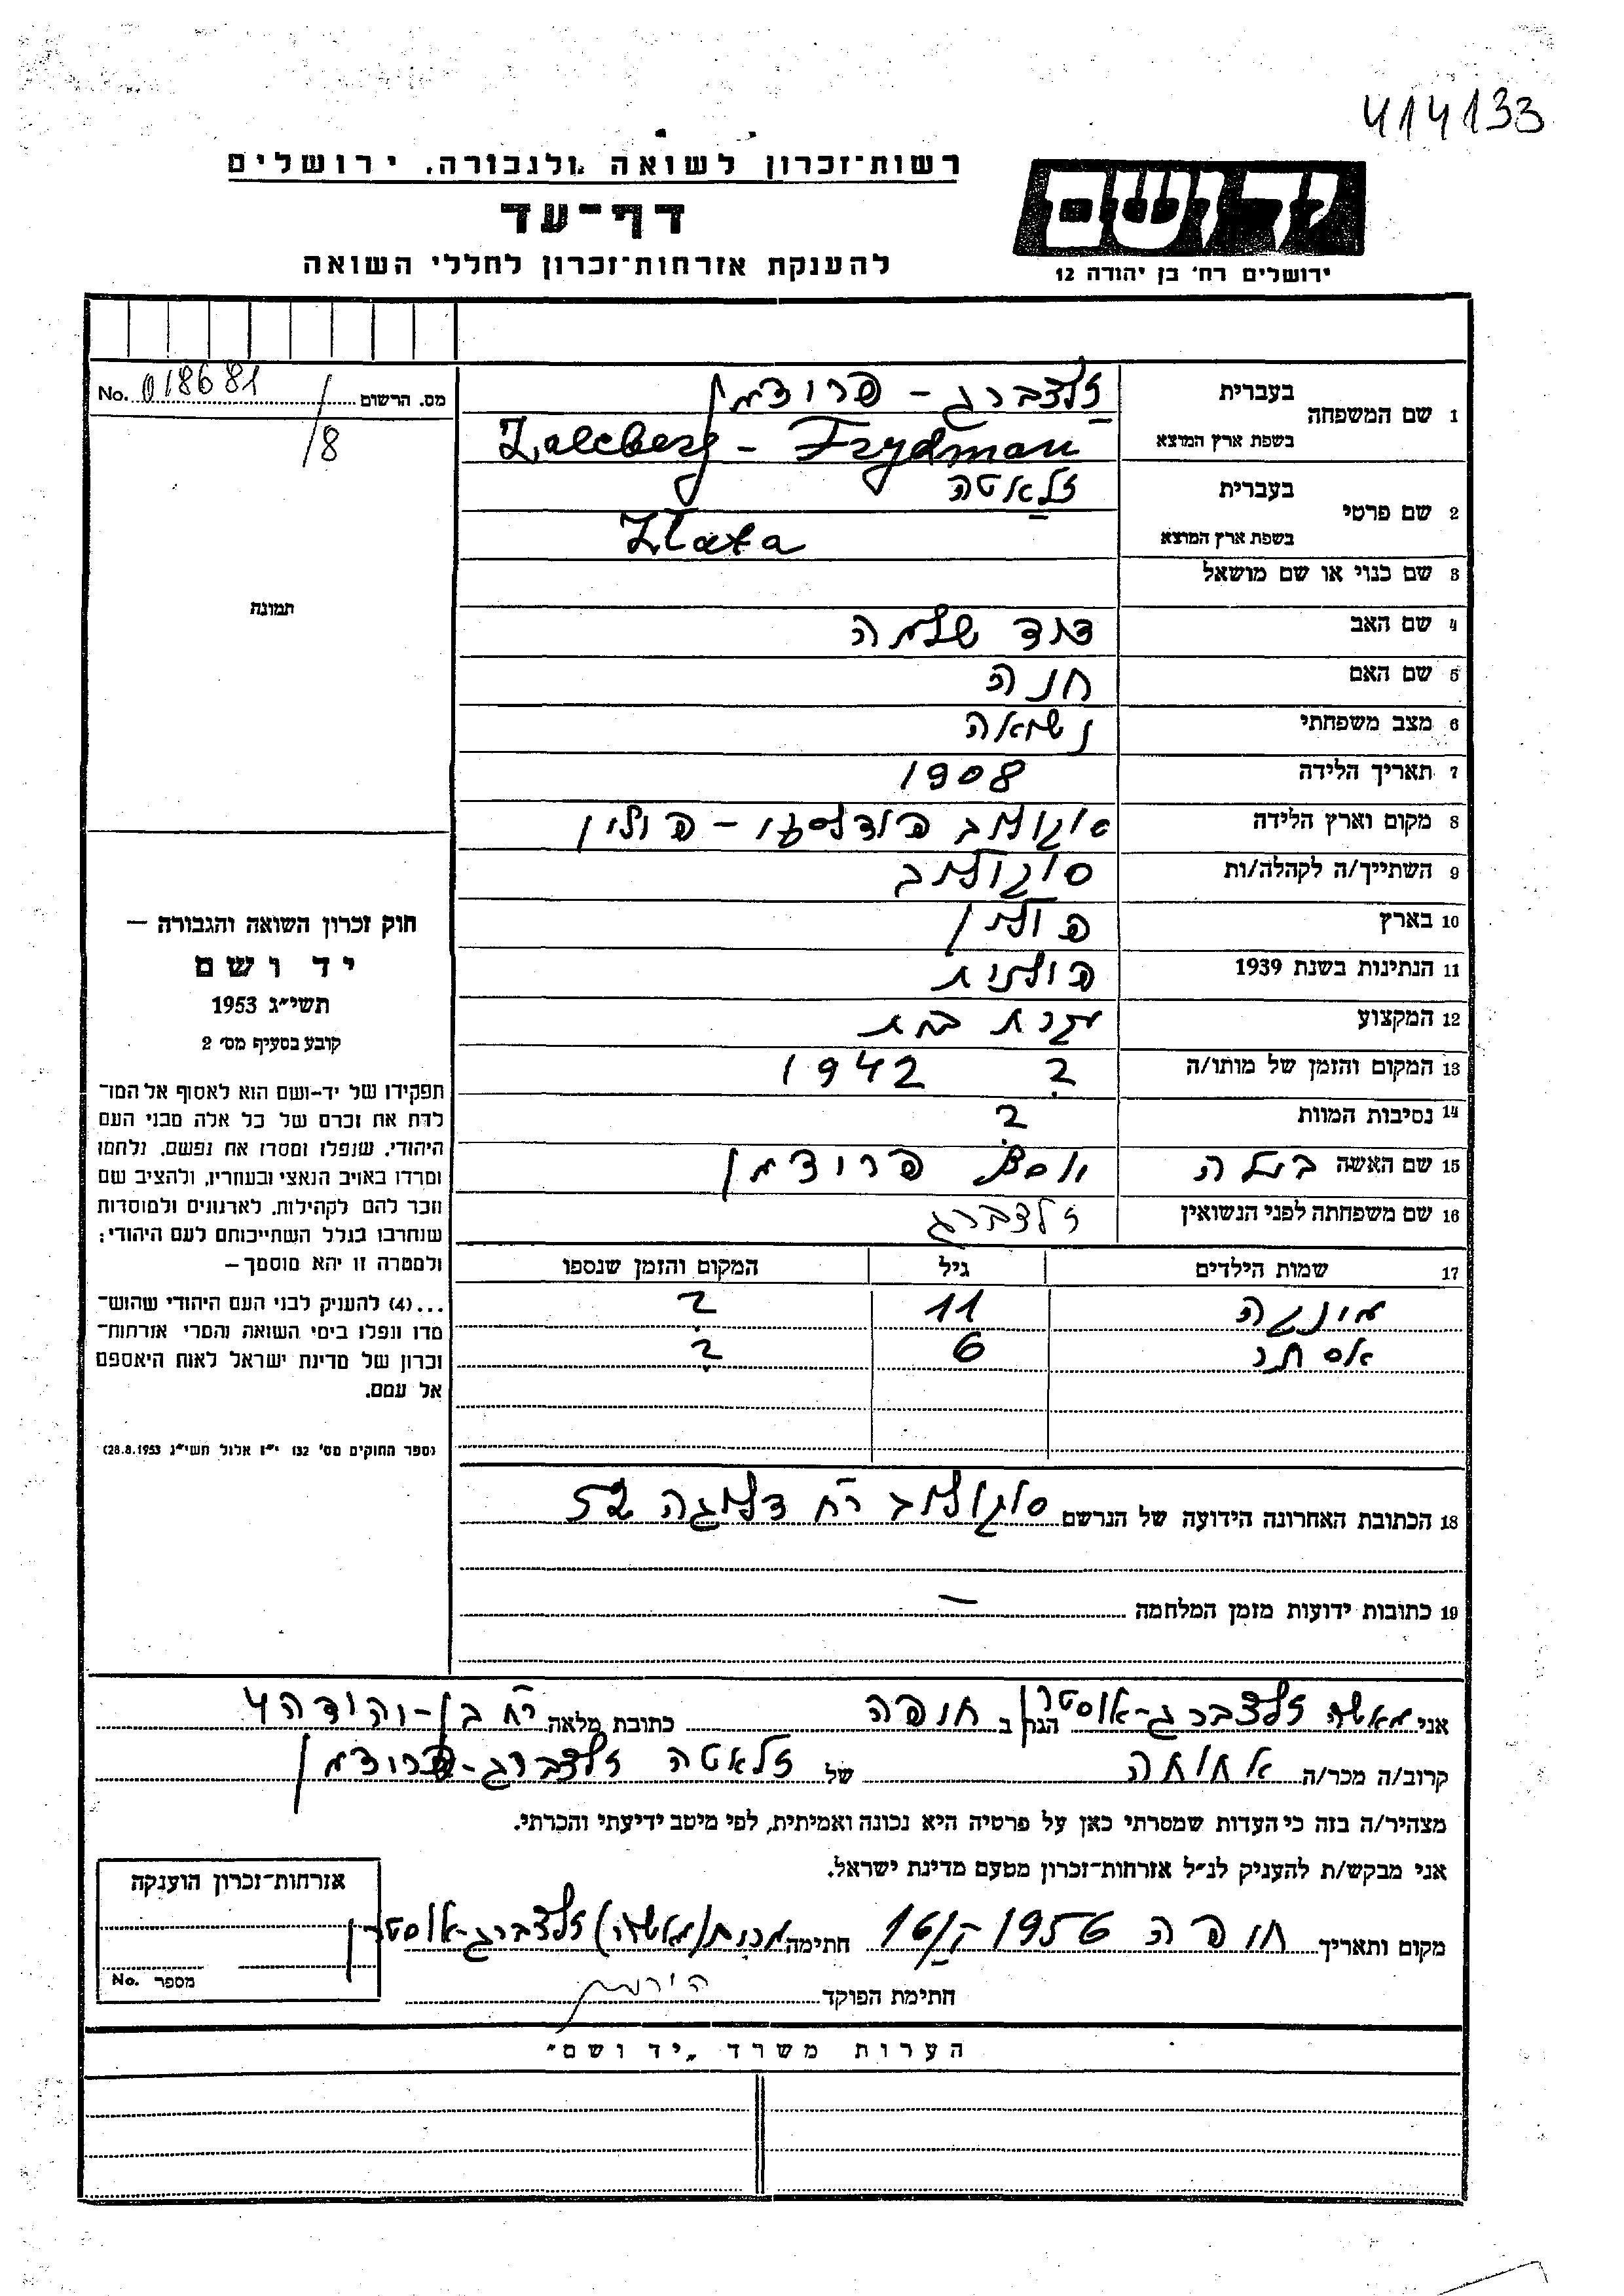 414133
רשות־זכרון לשואה ולגבורה, ירושלים
דף־עד
להענקת אזרחות־זכרון לחללי השואה
יד ושם
ירושלים רח' בן יהודה 12
מס. הרשום No. 018681
/8
תמונה
1 שם המשפחה בעברית זלצברג - פרידמן
בשפת ארץ המוצא Zalcberg - Frydman
2 שם פרטי בעברית זלאטה
בשפת ארץ המוצא Zlata
3 שם כנוי או שם מושאל
4 שם האב דוד שלמה
5 שם האם חנה
6 מצב משפחתי נשואה
7 תאריך הלידה 1908
8 מקום וארץ הלידה סוקולוב פודלסקי - פולין
9 השתייך/ה לקהלה/ות סוקולוב
10 בארץ פולין
11 הנתינות בשנת 1939 פולנית
12 המקצוע עקרת בית
13 המקום והזמן של מותו/ה ? 1942
14 נסיבות המוות ?
15 שם האשה בעלה יוסף פרידמן
16 שם משפחתה לפני הנשואין זלצברג
17 שמות הילדים גיל המקום והזמן שנספו
11 ?
אסתר 6 ?
18 הכתובת האחרונה הידועה של הנרשם סוקולוב רח' דלוגה 52
19 כתובות ידועות מזמן המלחמה —
חוק זכרון השואה והגבורה —
יד ושם
תשי״ג 1953
קובע בסעיף מס׳ 2
תפקידו של יד-ושם הוא לאסוף אל המו־
לדת את זכרם של כל אלה מבני העם
היהודי, שנפלו ומסרו את נפשם, נלחמו
ומרדו באויב הנאצי ובעוזריו, ולהציב שם
וזכר להם לקהילות, לארגונים ולמוסדות
שנחרבו בגלל השתייכותם לעם היהודי;
ולמטרה זו יהא מוסמך —
...(4) להעניק לבני העם היהודי שהוש־
מדו ונפלו בימי השואה והמרי אזרחות־
זכרון של מדינת ישראל לאות היאספם
אל עמם.
(ספר החוקים מס׳ 132 י״ז אלול תשי״ג 28.8.1953)
אני מאשה זלצברג-אוסטרן הגר ב חיפה כתובת מלאה רח' בן-יהודה 4
קרוב/ה מכר/ה אחותה של זלאטה זלצברג-פרידמן
מצהיר/ה בזה כי העדות שמסרתי כאן על פרטיה היא נכונה ואמיתית, לפי מיטב ידיעתי והכרתי.
אני מבקש/ת להעניק לנ״ל אזרחות-זכרון מטעם מדינת ישראל.
מקום ותאריך חיפה 1956 חתימה (מאשה) זלצברג-אוסטרן
חתימת הפוקד
אזרחות-זכרון הוענקה
מספר No.
הערות משרד „יד ושם״